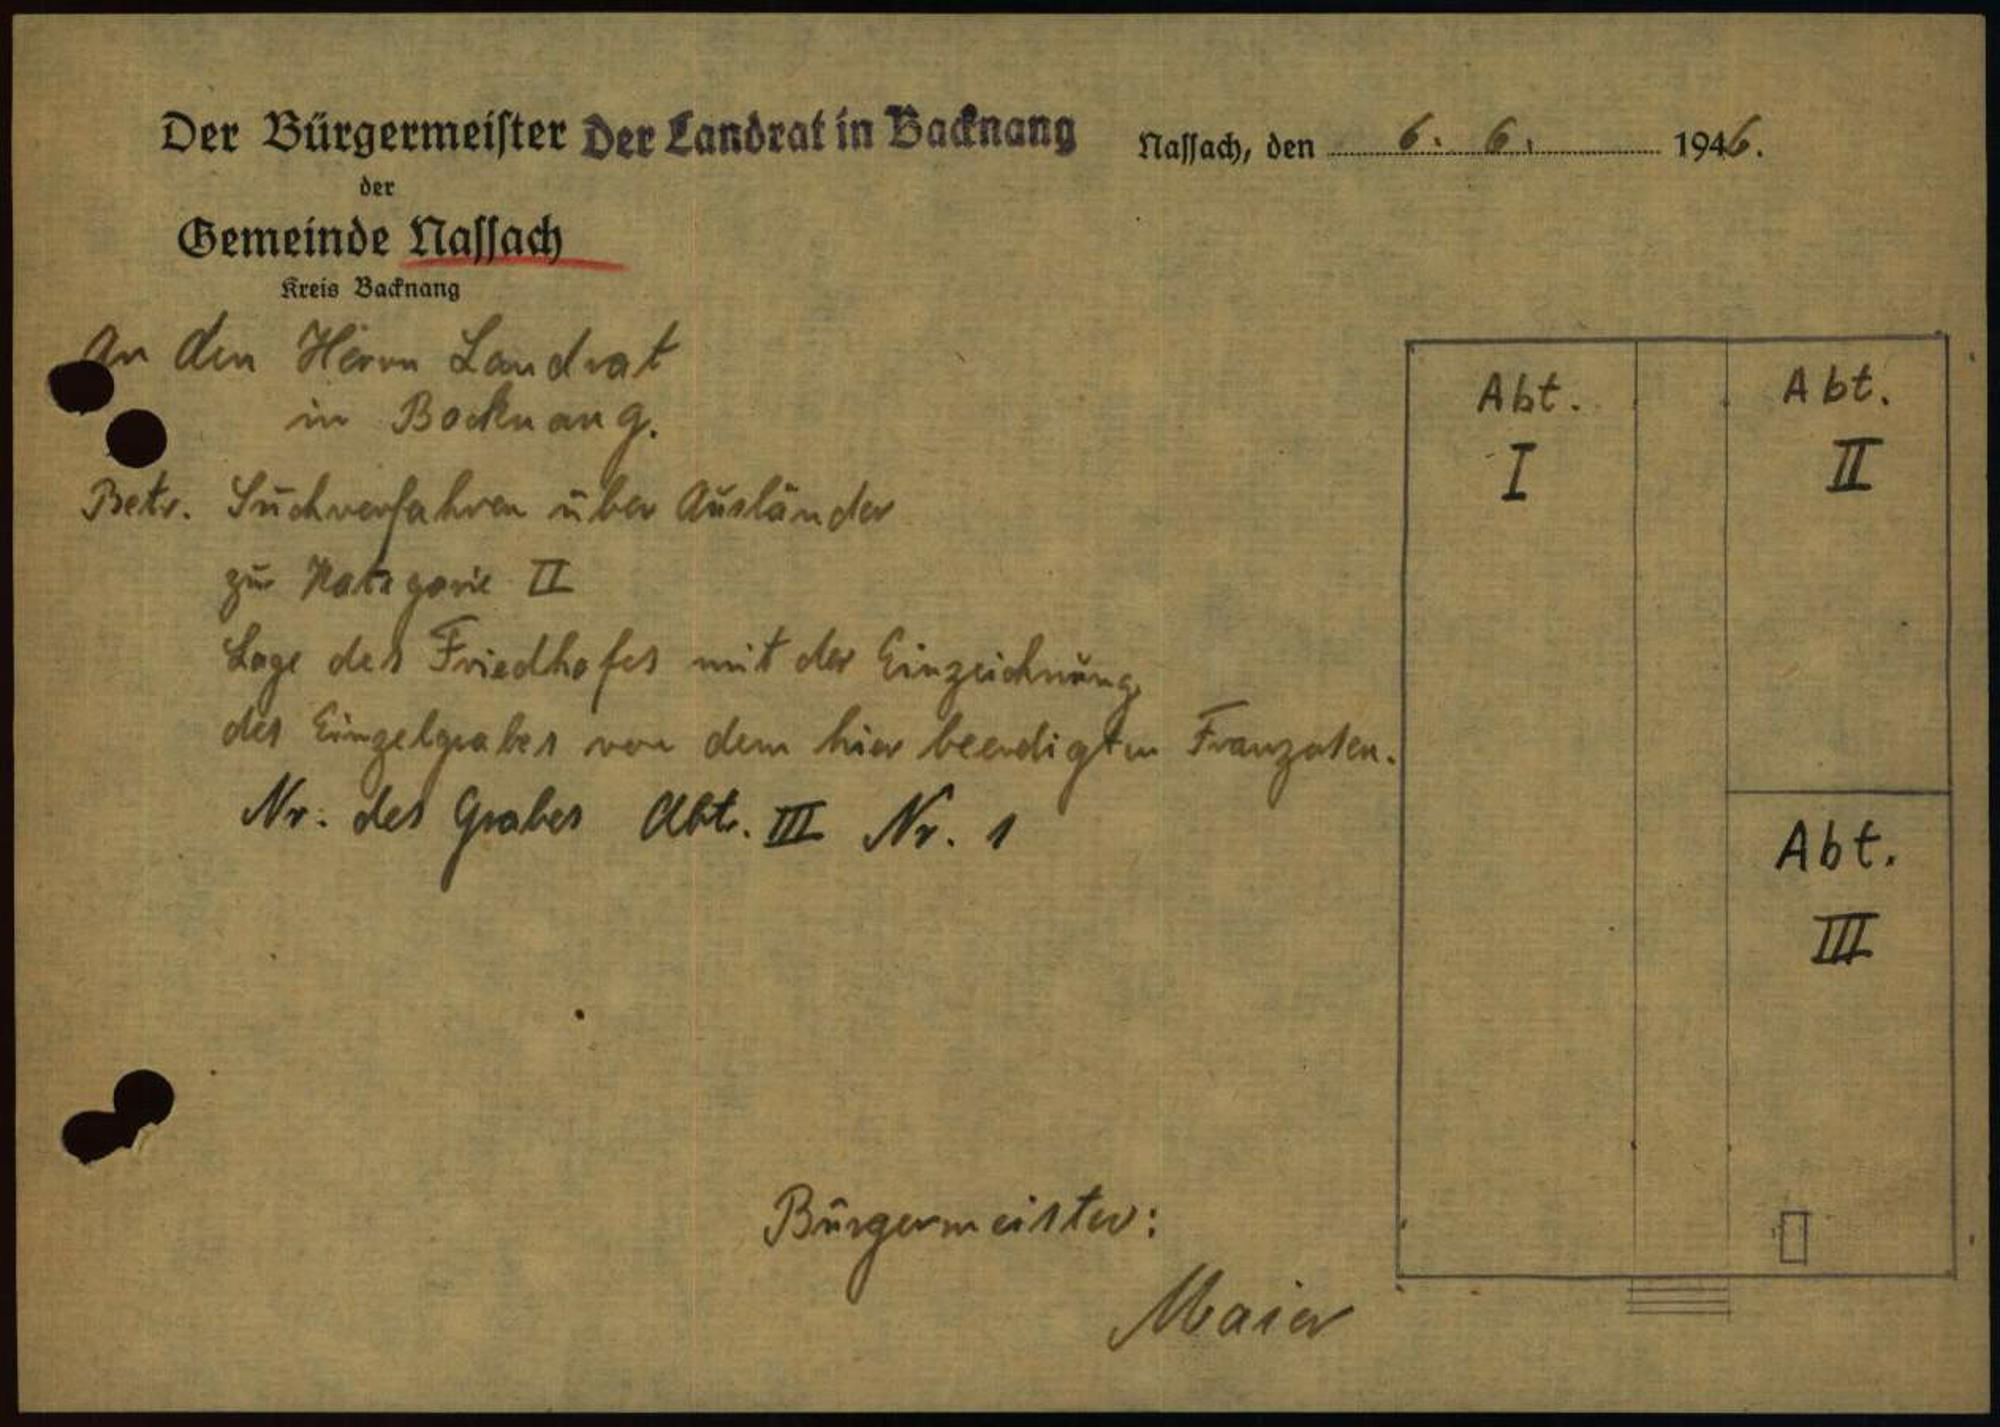 Der Bürgermeister Der Landrat in Backnang
Nassach, den 6. 6. 1946.
der
Gemeinde Nassach
Kreis Backnang
An den Herrn Landrat
in Backnang.
Betr. Suchverfahren über Ausländer
zur Kategorie II
Lage des Friedhofes mit der Einzeichnung
des Einzelgrabes von dem hier beerdigten Franzosen.
Nr. des Grabes Abt. III Nr. 1
Bürgermeister:
Maier
Abt.
I
Abt.
II
Abt.
III